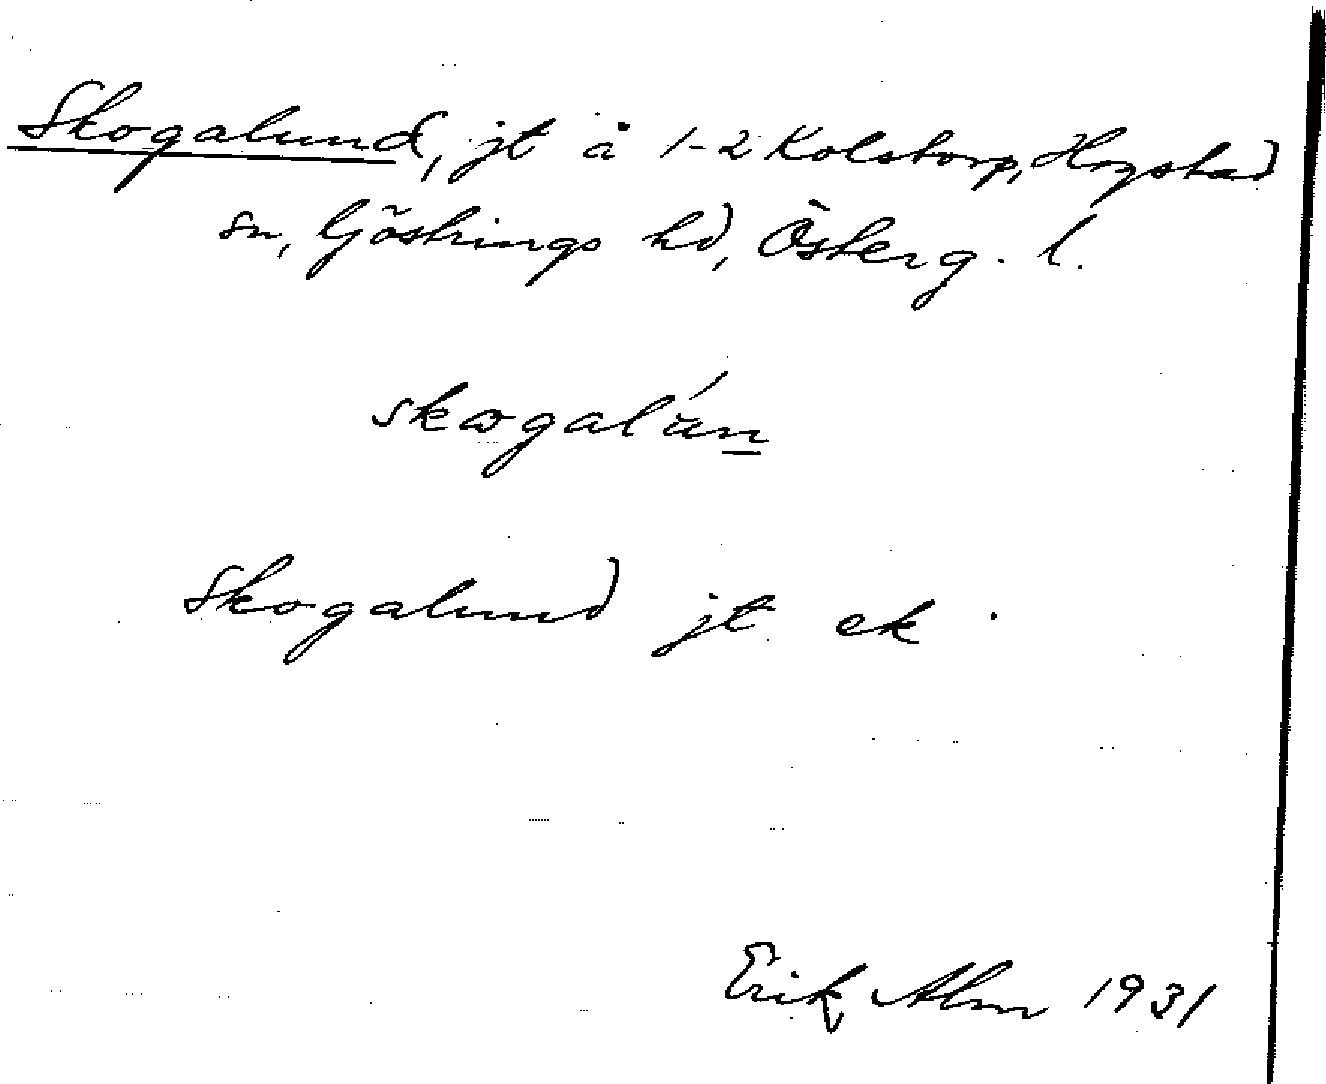 Skogalund, jt å 1-2 Kolstorp, Hogstad
sn, Göstrings hd, Österg. l.
skogalún
Skogalund jt ek
Erik Alm 1931